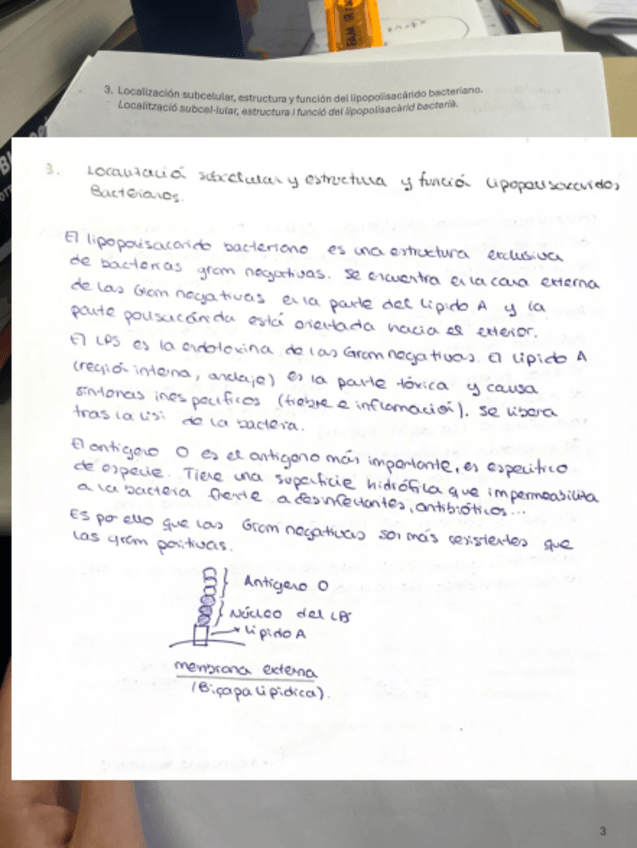 3. Localización subcelular, estructura y función del lipopolisacárido bacteriano.
Localització subcel·lular, estructura i funció del lipopolisacàrid bacterià.
3. Localización subcelular y estructura y función lipopolisacáridos
Bacterianos.
El lipopolisacarido bacteriano es una estructura exclusiva
de bacterias gram negativas. Se encuentra en la cara externa
de las Gram negativas en la parte del lípido A y la
parte polisacárida está orientada hacia el exterior.
El LPS es la endotoxina de las Gram negativas. El lípido A
(región interna, anclaje) es la parte tóxica y causa
síntomas inespecíficos (fiebre e inflamación). Se libera
tras la lisi de la bacteria.
El antígeno O es el antígeno más importante, es específico
de especie. Tiene una superficie hidrófila que impermeabiliza
a la bacteria frente a desinfectantes, antibióticos...
Es por ello que las Gram negativas son más resistentes que
las gram positivas.
Antígeno O
Núcleo del LPS
Lípido A
membrana externa
(Biçapa lipídica).
3